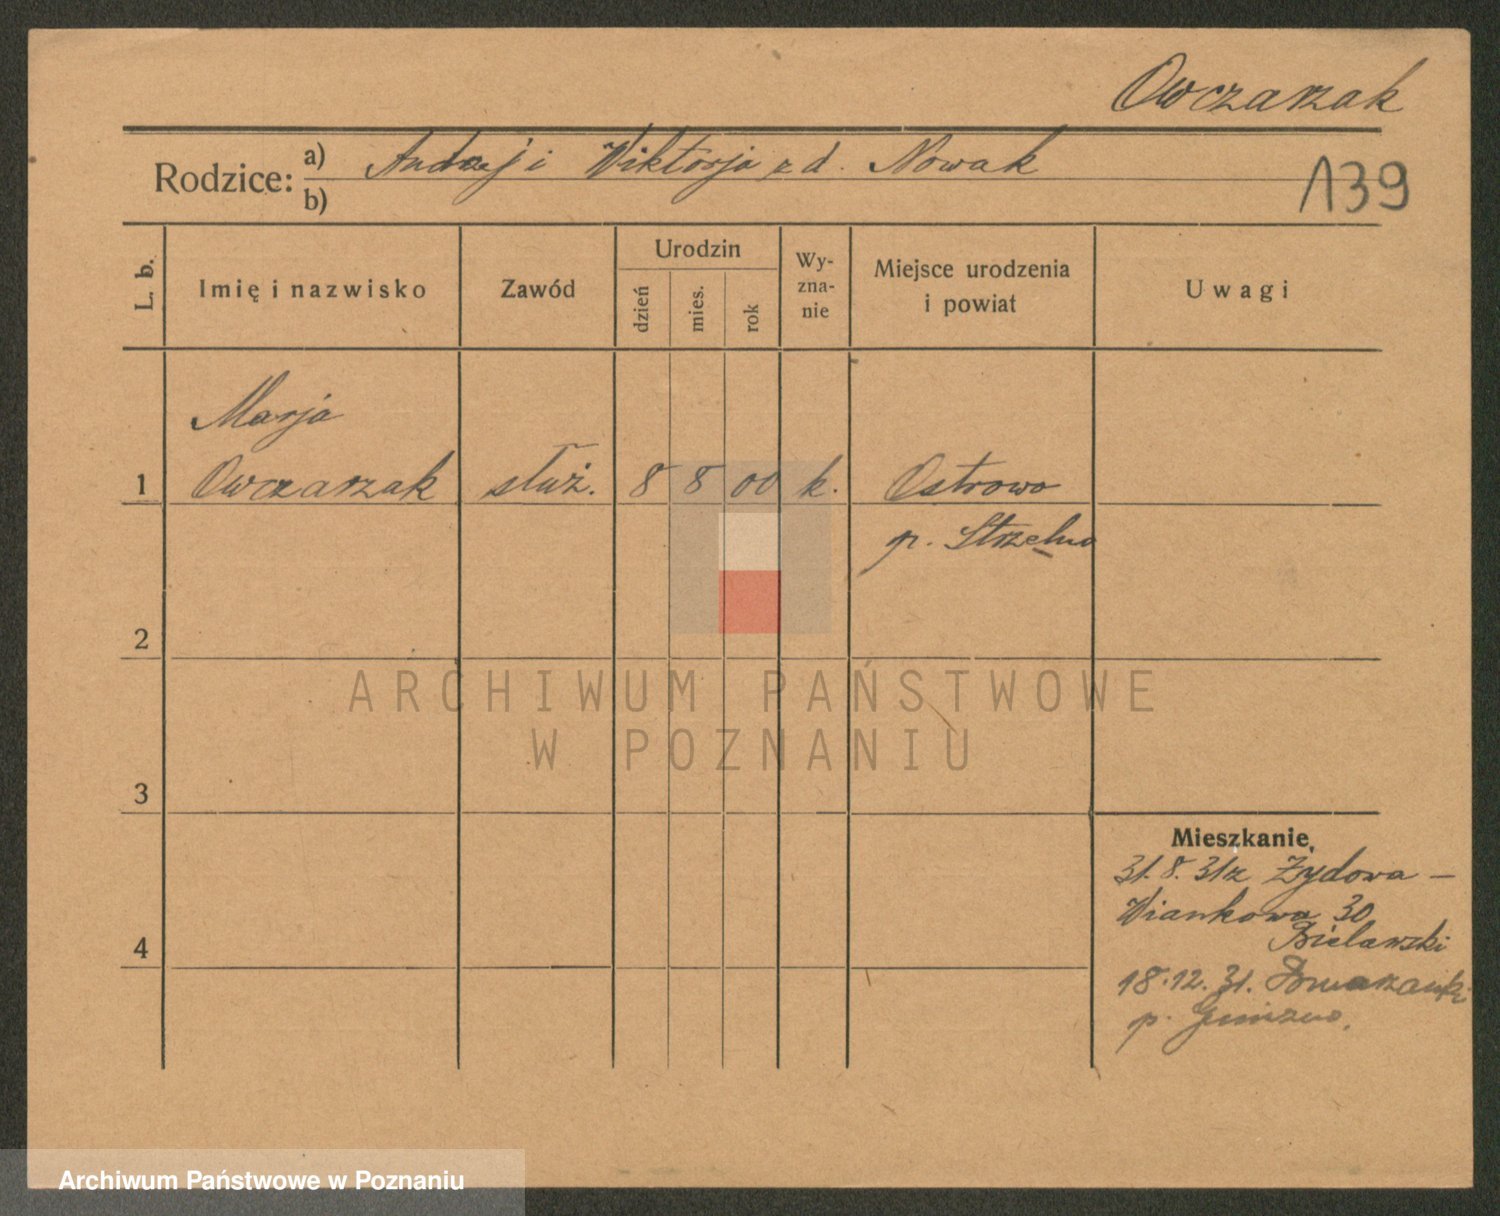 Owczarzak
Rodzice: a) Andrzej i Wiktorja z d. Nowak
b)
139
L. b.
Imię i nazwisko
Zawód
Urodzin
dzień
mies.
rok
Wy-
zna-
nie
Miejsce urodzenia
i powiat
Uwagi
Marja
1 Owczarzak służ. 8 8 00 k. Ostrowo
p. Strzelno
2
ARCHIWUM PAŃSTWOWE
W POZNANIU
3
Mieszkanie
31. 8. 31 z Żydowa –
Wiankowa 30
Bielawski
4
18.12.31.
p. Gniezno.
Archiwum Państwowe w Poznaniu